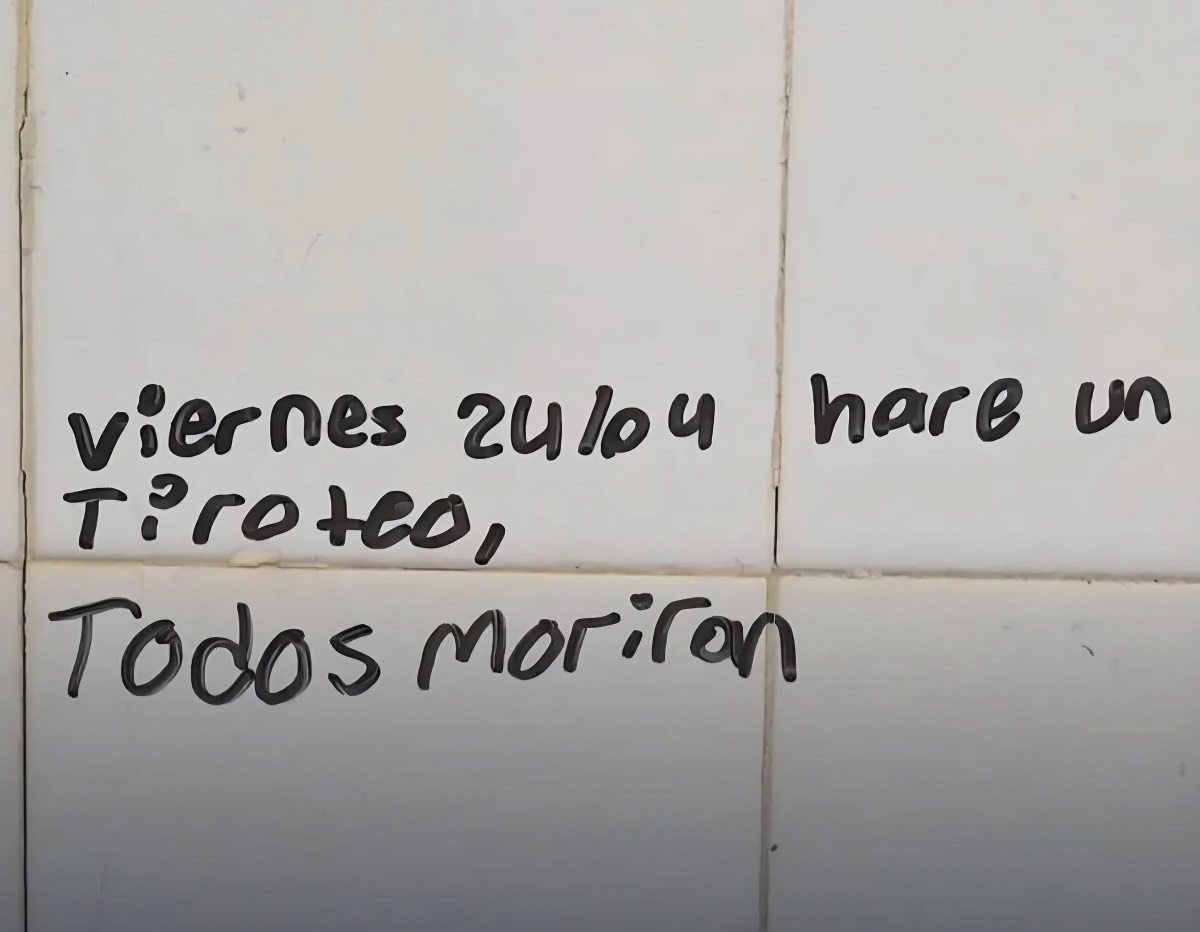 viernes 24/04 hare un
Tiroteo,
Todos moriran